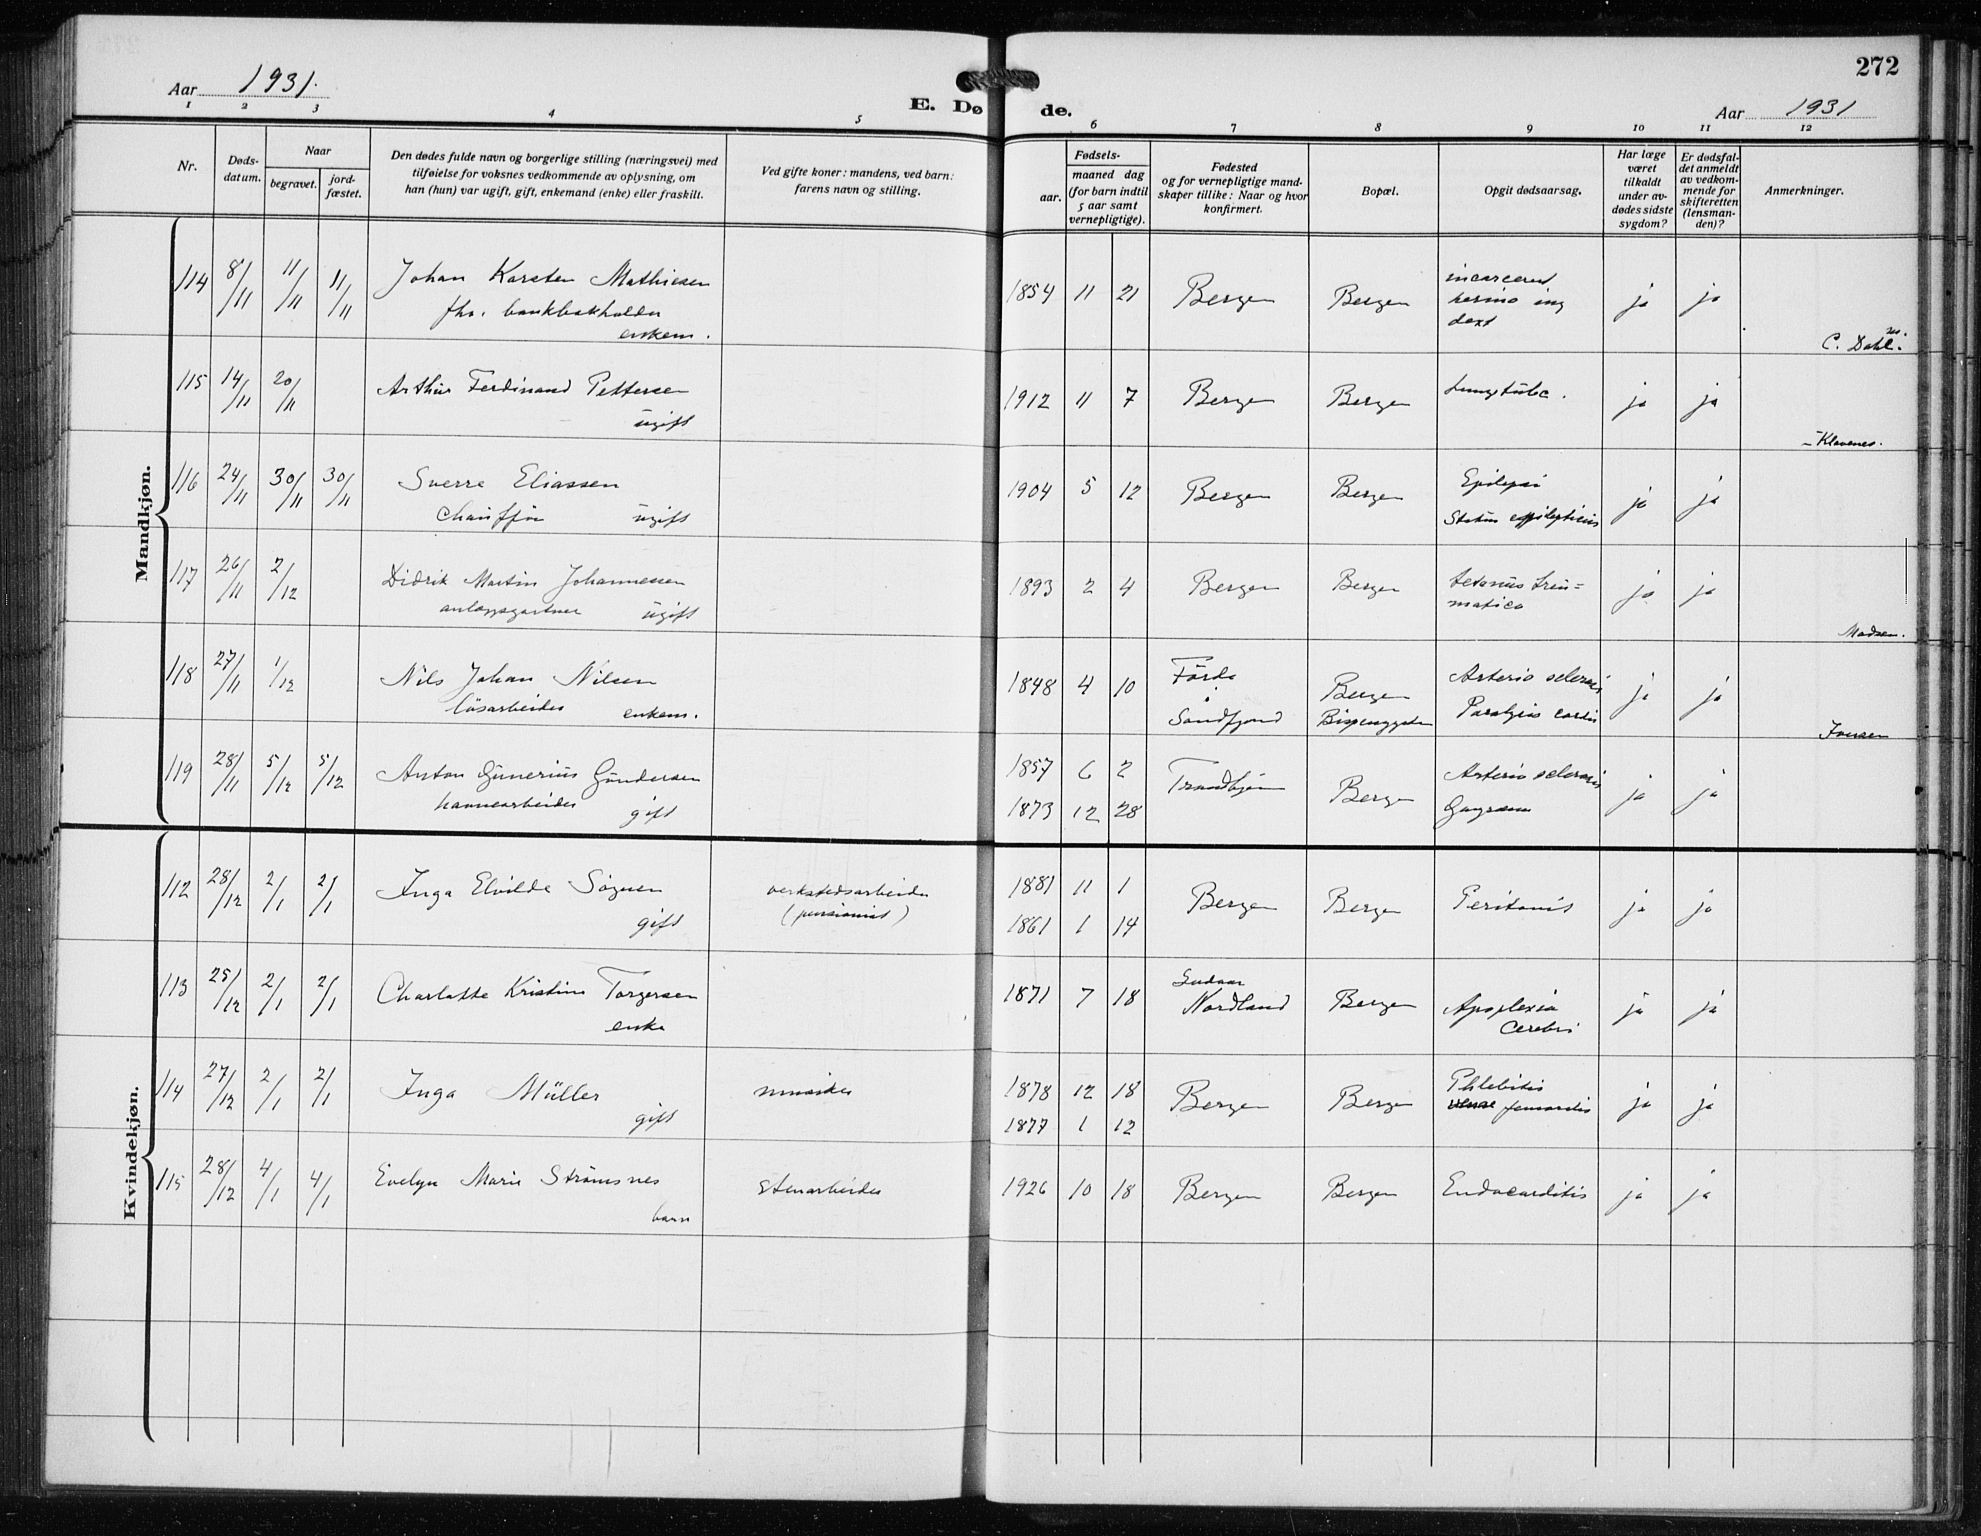 272
Aar 1931.
E. Dø de.
Aar 1931
1 2 3 4 5 6 7 8 9 10 11 12
Nr.
Døds-
datum.
Naar
begravet.
jord-
fæstet.
Den dødes fulde navn og borgerlige stilling (næringsvei) med
tilføielse for voksnes vedkommende av oplysning, om
han (hun) var ugift, gift, enkemand (enke) eller fraskilt.
Ved gifte koner: mandens, ved barn:
farens navn og stilling.
aar.
Fødsels-
maaned dag
(for barn indtil
5 aar samt
vernepligtige).
Fødested
og for vernepligtige mand-
skaper tillike: Naar og hvor
konfirmert.
Bopæl.
Opgit dødsaarsag.
Har læge
været
tilkaldt
under av-
dødes sidste
sygdom?
Er dødsfal-
det anmeldt
av vedkom-
mende for
skifteretten
(lensman-
den)?
Anmerkninger.
Mandkjøn.
114 8/11 11/11 11/11 Johan Karsten Mathiesen 1854 11 21 Bergen Bergen ja ja
fhv. bankbokholder
enkem.
ing
dext
C. Dahl.
115 14/11 20/11 Arthur Ferdinand Pettersen 1912 11 7 Bergen Bergen Lungetub. ja ja
ugift
Klavenes.
116 24/11 30/11 30/11 Sverre Eliassen 1904 5 12 Bergen Bergen Epilepsi ja ja
Chauffør ugift
Status epilepticus
117 26/11 2/12 Didrik Martin Johannessen 1893 2 4 Bergen Bergen tetanus trau=
matica ja ja
anlægsgartner ugift
Madsen.
118 27/11 1/12 Nils Johan Nilsen 1848 4 10 Förde i Söndfjord Bergen Arterio sclerosis ja ja
løsarbeider enkem.
Paralysis cordis
119 28/11 5/12 5/12 Anton Gunerius Gundersen 1857 6 2 Trondhjem Bergen Arterio sclerosis ja ja
havnearbeider gift
1873 12 28 Gangræna
Kvindekjøn.
112 28/12 2/1 2/1 Inga Elvilde Sognen verkstedsarbeider 1881 11 1 Bergen Bergen Peritonis ja ja
gift (pensionist) 1861 1 14
113 25/12 2/1 2/1 Charlotte Kristine Torgersen 1871 7 18 Nordland Bergen Apoplexia ja ja
enke
Cerebri
114 27/12 2/1 2/1 Inga Müller musiker 1878 12 18 Bergen Bergen Phlebitis ja ja
gift 1877 1 12 femoralis
115 28/12 4/1 4/1 Evelyn Marie Strømsnes stenarbeider 1926 10 18 Bergen Bergen Endocarditis ja ja
barn